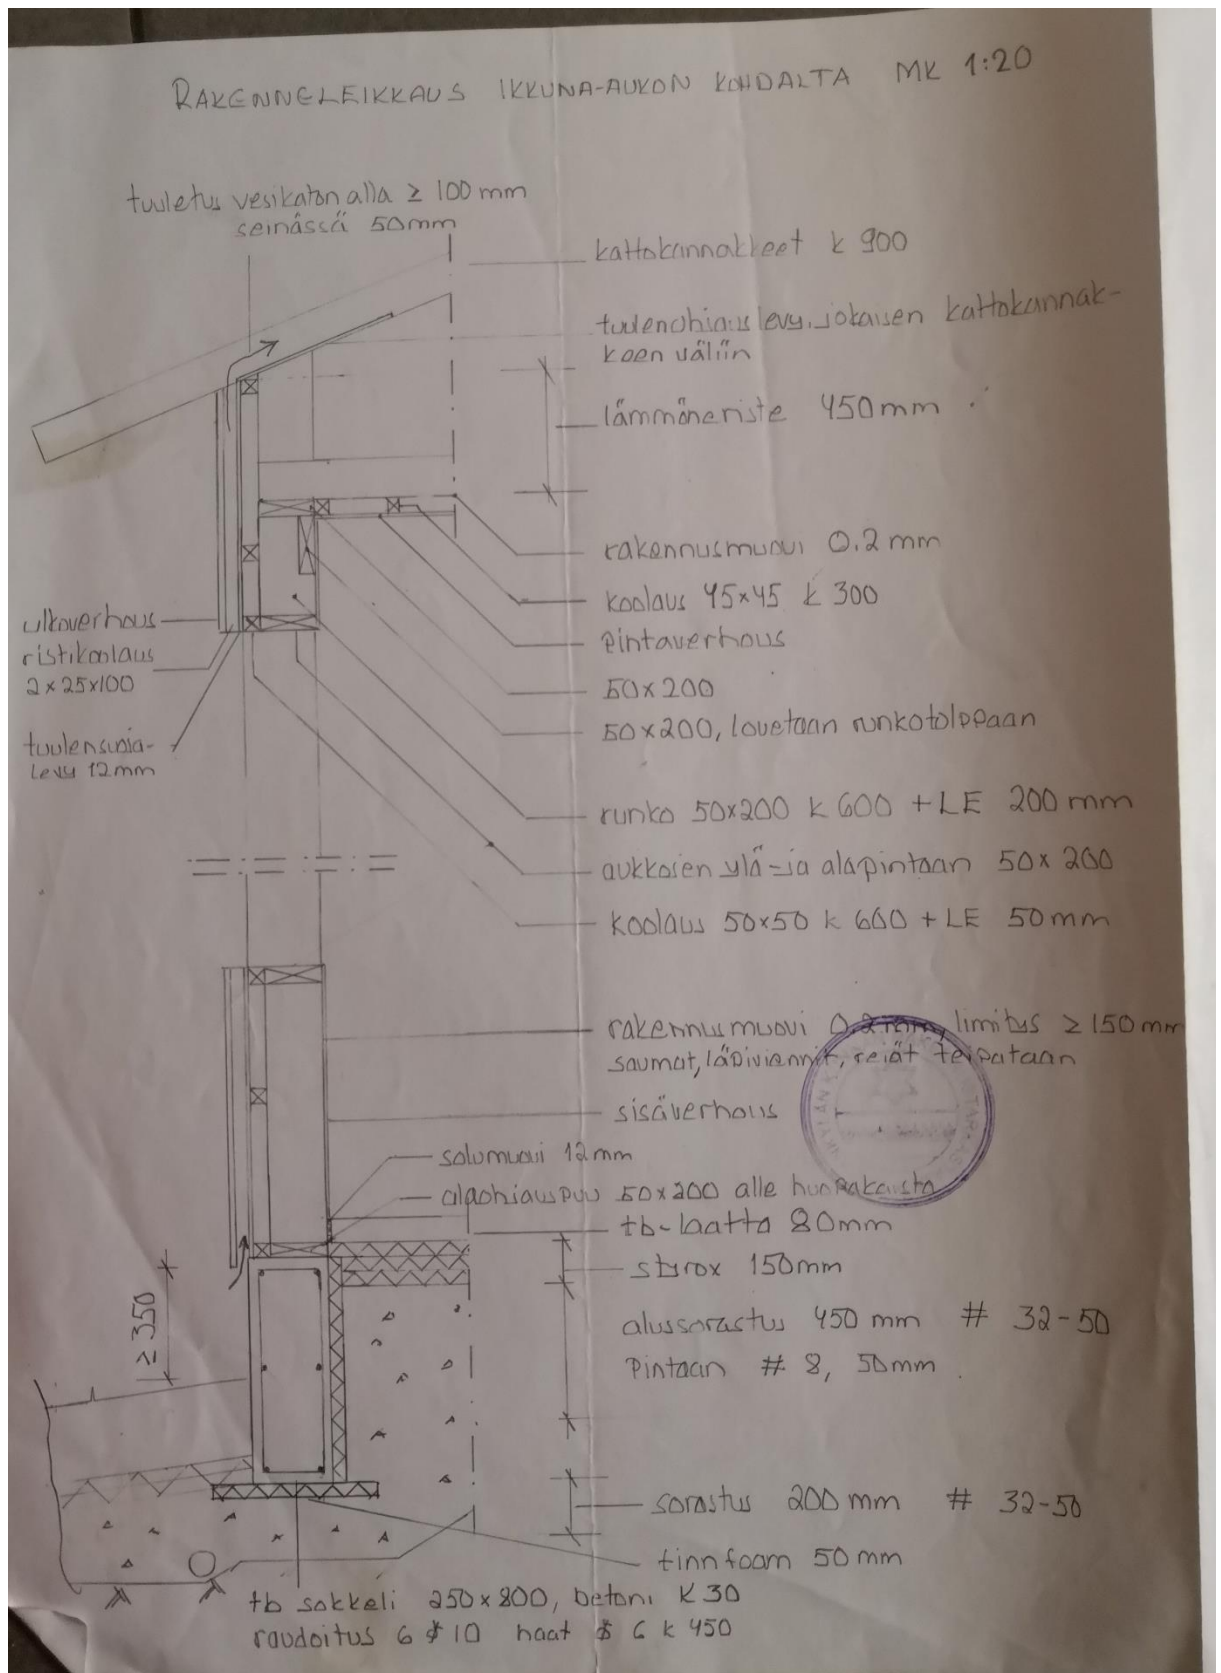 RAKENNELEIKKAUS IKKUNA-AUKON KOHDALTA MK 1:20
tuuletus vesikaton alla ≥ 100 mm
seinässä 50mm
kattokannakkeet k 900
tuulenohjauslevy, jokaisen kattokannak-
keen väliin
lämmöneriste 450mm
rakennusmuovi 0.2 mm
koolaus 45x45 k 300
pintaverhous
50x200
50x200, lovetaan runkotolppaan
ulkoverhous
ristikoolaus
2x25x100
tuulensuoja-
levy 12mm
runko 50x200 k 600 + LE 200 mm
aukkojen ylä- ja alapintaan 50x200
koolaus 50x50 k 600 + LE 50mm
rakennusmuovi 0.2 mm, limitys ≥ 150 mm
saumat, läpiviennit, reiät teipataan
sisäverhous
solumuovi 12mm
alaohjauspuu 50x200 alle huopakaista
tb-laatta 80mm
styrox 150mm
≥ 350
alussorastus 450 mm # 32-50
pintaan # 8, 50mm
sorastus 200 mm # 32-50
finnfoam 50mm
tb sokkeli 250x800, betoni K30
raudoitus 6 ϕ 10 haat ϕ 6 k 450